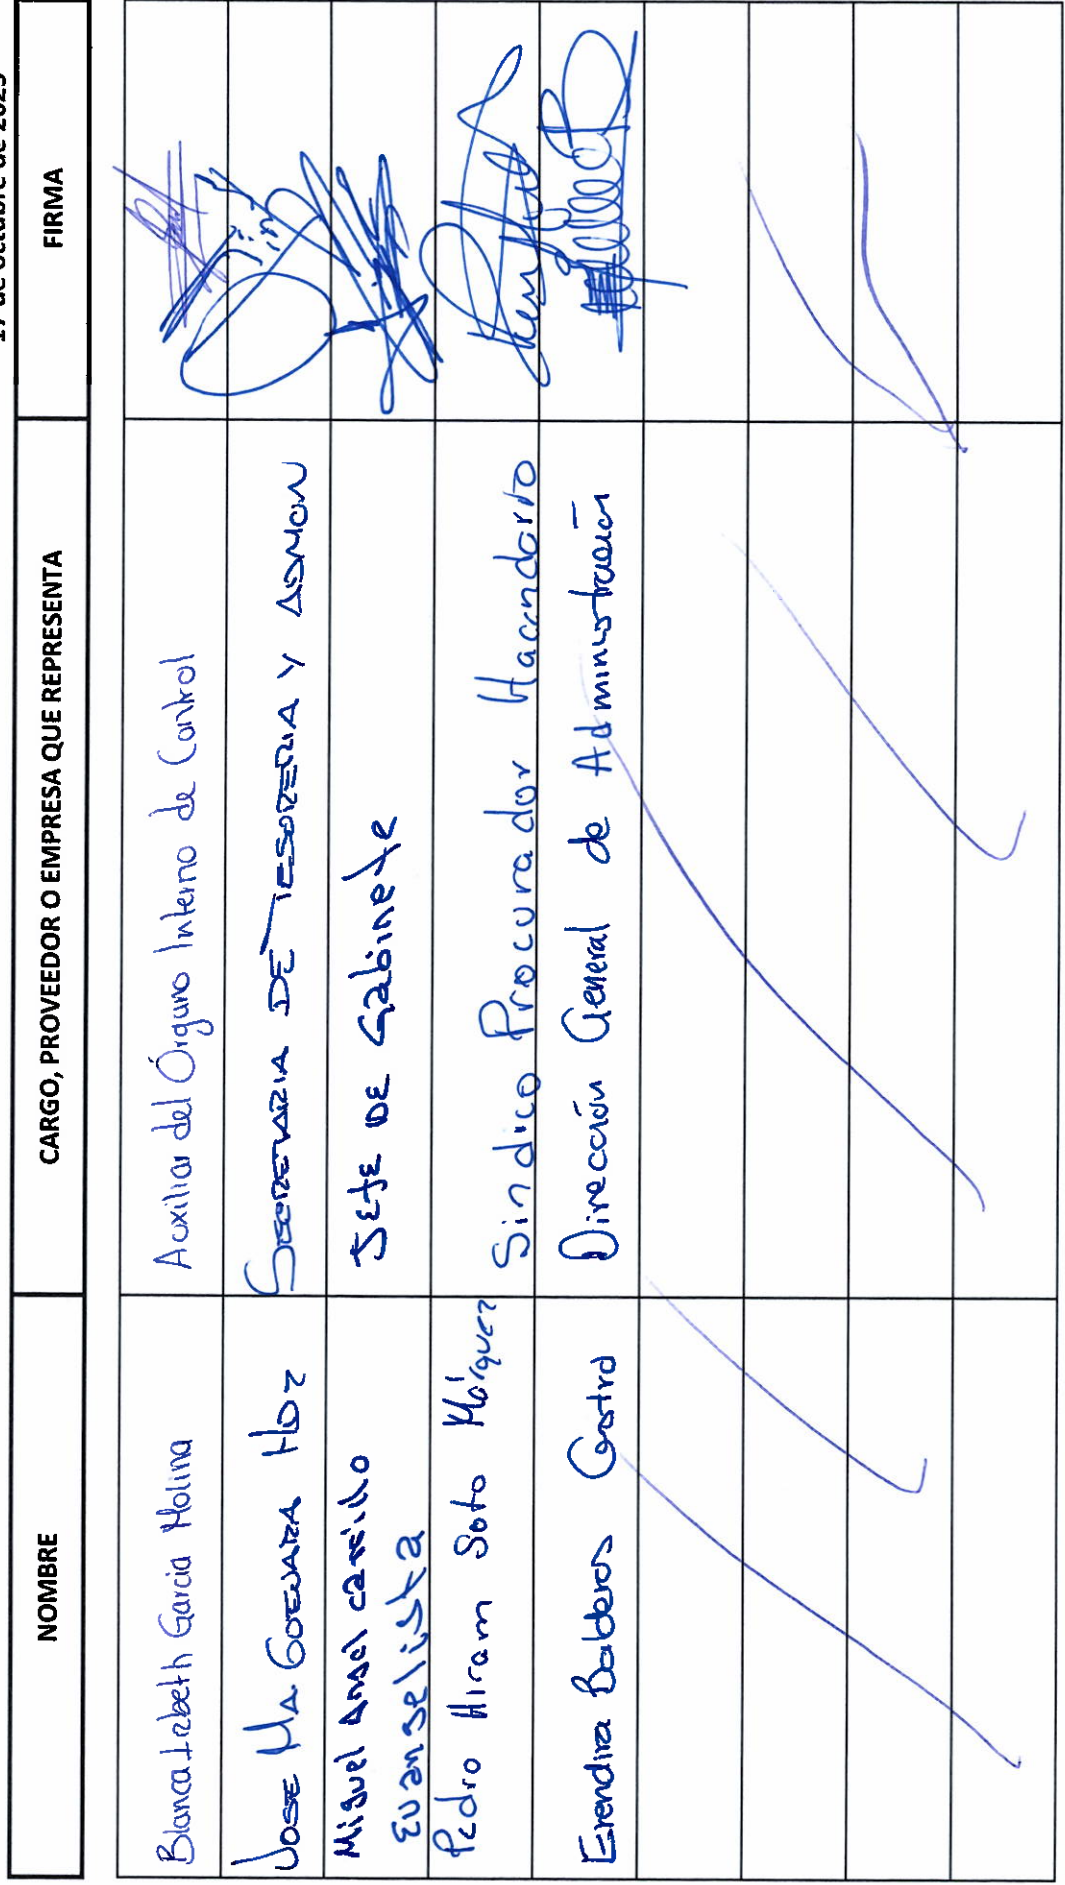 17 de octubre de 2025
NOMBRE CARGO, PROVEEDOR O EMPRESA QUE REPRESENTA FIRMA
Blanca Izbeth Garcia Molina Auxiliar del Órgano Interno de Control
JOSE MA GUEVARA HDZ SECRETARIA DE TESORERIA Y ADMON
Miguel Angel Carrillo
Evangelista JEFE DE Gabinete
Pedro Hiram Soto Márquez Sindico Procurador Hacendario
Erendira Balderas Castro Dirección General de Administración